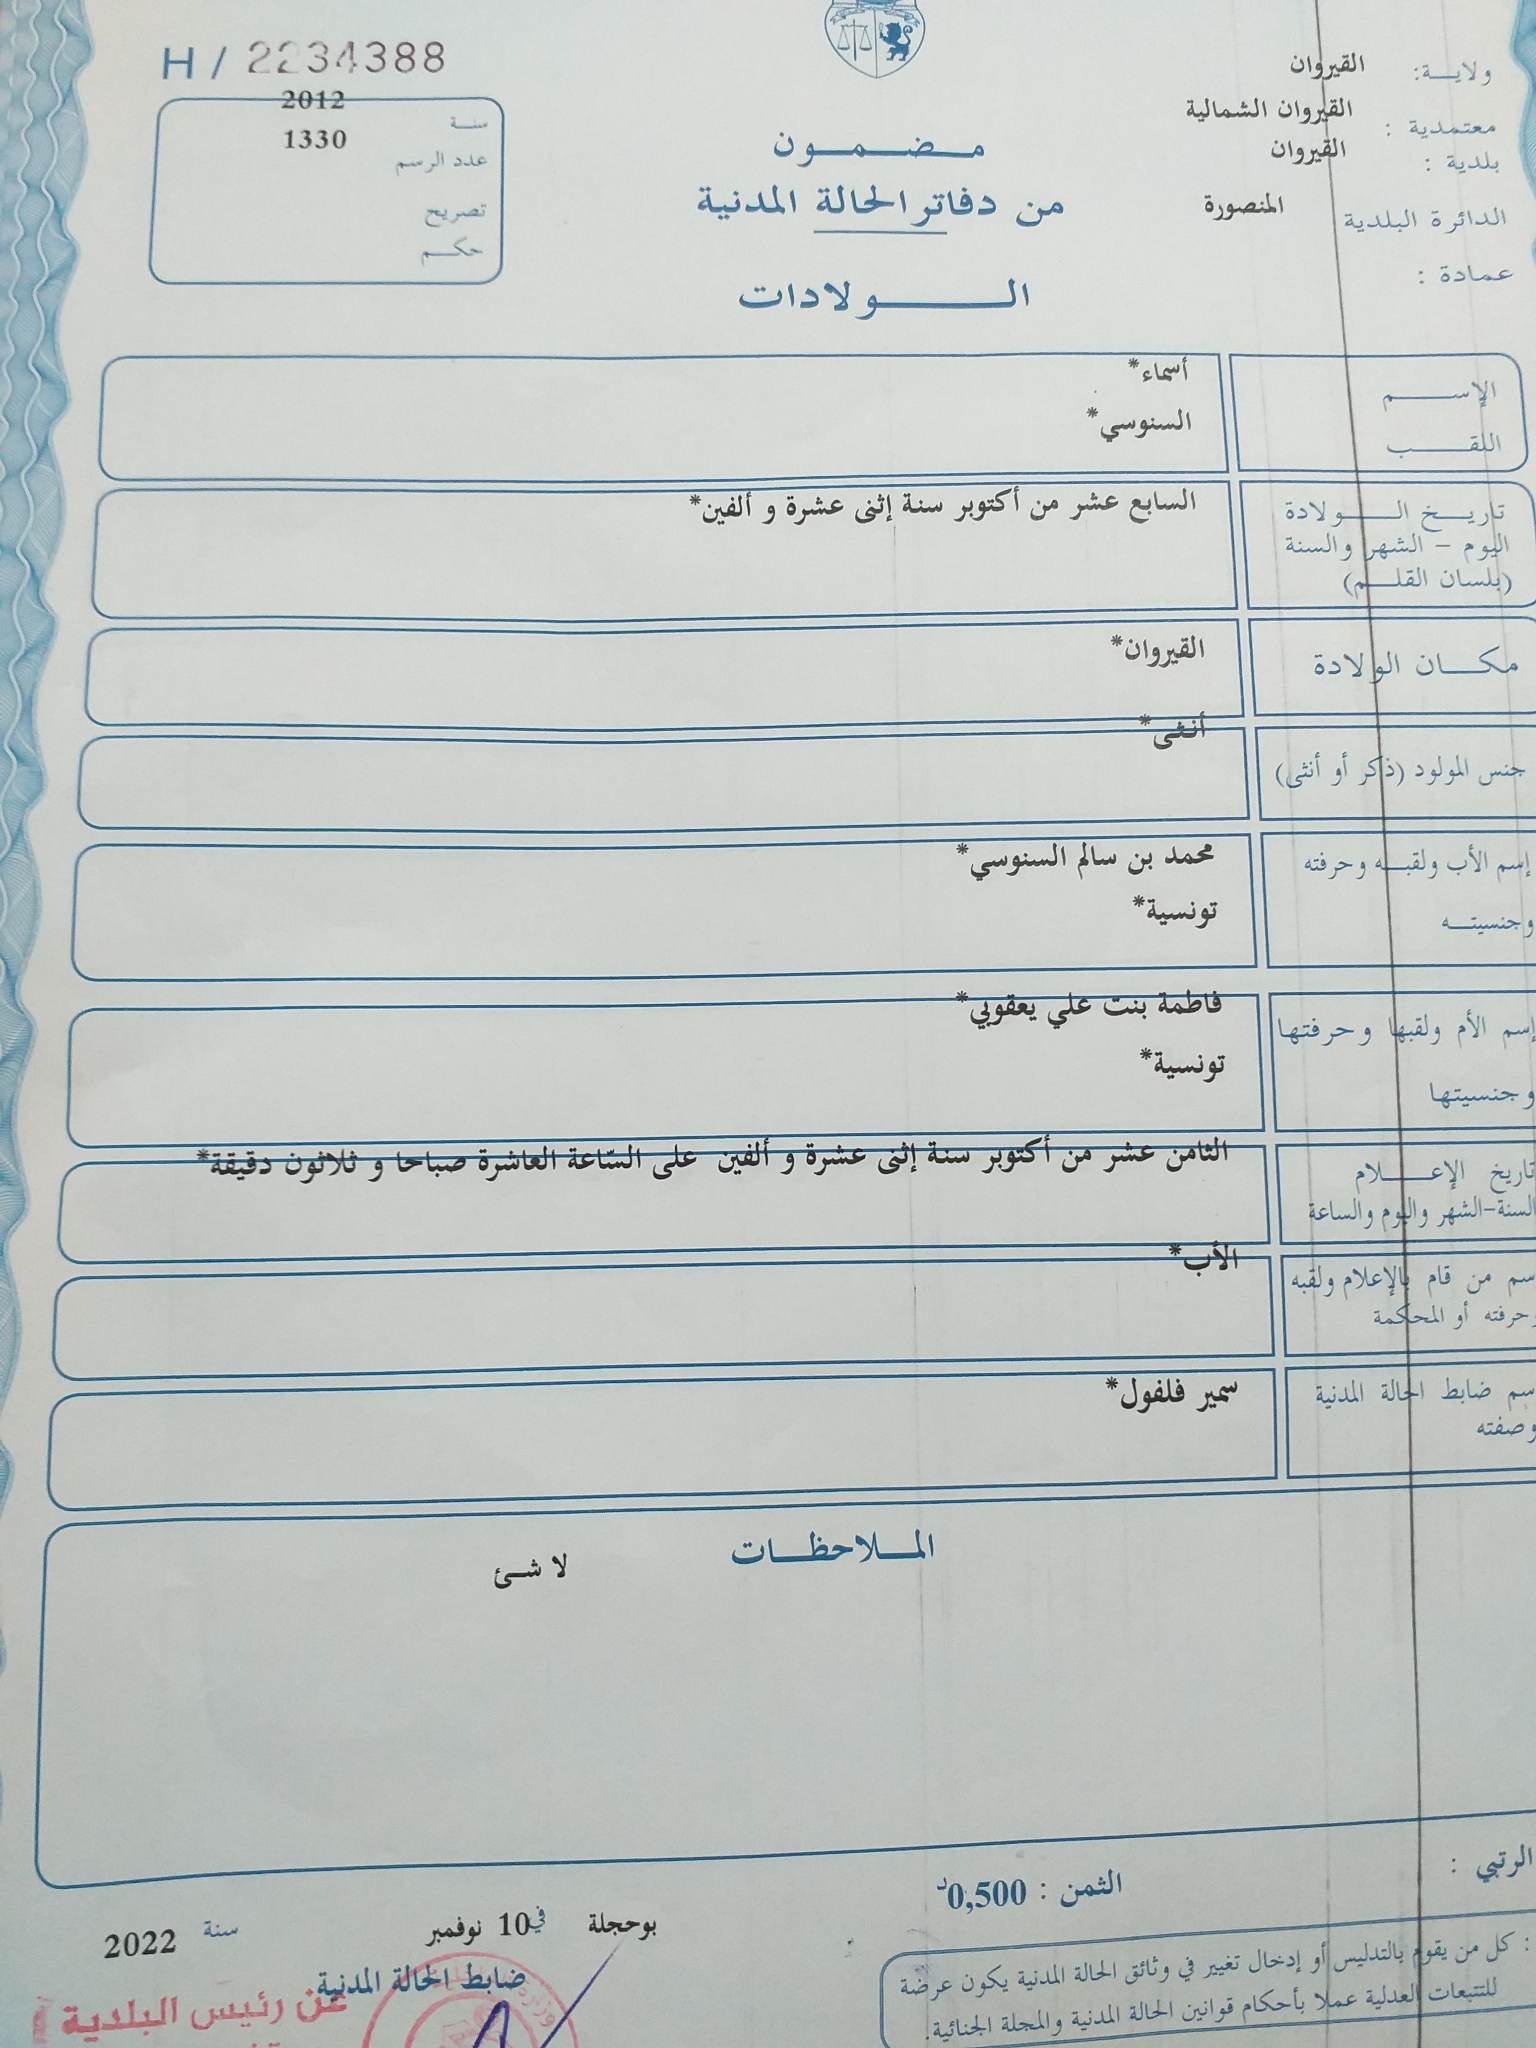 H / 2234388
ولاية: القيروان
معتمدية : القيروان الشمالية
بلدية : القيروان
الدائرة البلدية المنصورة
عمادة :
سنة 2012
عدد الرسم 1330
تصريح
حكم
مضمون
من دفاتر الحالة المدنية
الولادات
الإسم أسماء*
اللقب السنوسي*
تاريخ الولادة السابع عشر من أكتوبر سنة إثنى عشرة و ألفين*
اليوم - الشهر والسنة
(بلسان القلم)
مكان الولادة القيروان*
جنس المولود (ذكر أو أنثى) أنثى*
إسم الأب ولقبه وحرفته محمد بن سالم السنوسي*
وجنسيته تونسية*
إسم الأم ولقبها وحرفتها فاطمة بنت علي يعقوبي*
وجنسيتها تونسية*
تاريخ الإعلام الثامن عشر من أكتوبر سنة إثنى عشرة و ألفين على السّاعة العاشرة صباحا و ثلاثون دقيقة*
السنة-الشهر واليوم والساعة
سم من قام بالإعلام ولقبه الأب*
وحرفته أو المحكمة
سم ضابط الحالة المدنية سمير فلفول*
وصفته
الملاحظات
لا شئ
الرتبي :
الثمن : 0,500د
بوحجلة في 10 نوفمبر سنة 2022
ضابط الحالة المدنية
عن رئيس البلدية
: كل من يقوم بالتدليس أو إدخال تغيير في وثائق الحالة المدنية يكون عرضة
للتتبعات العدلية عملا بأحكام قوانين الحالة المدنية والمجلة الجنائية.